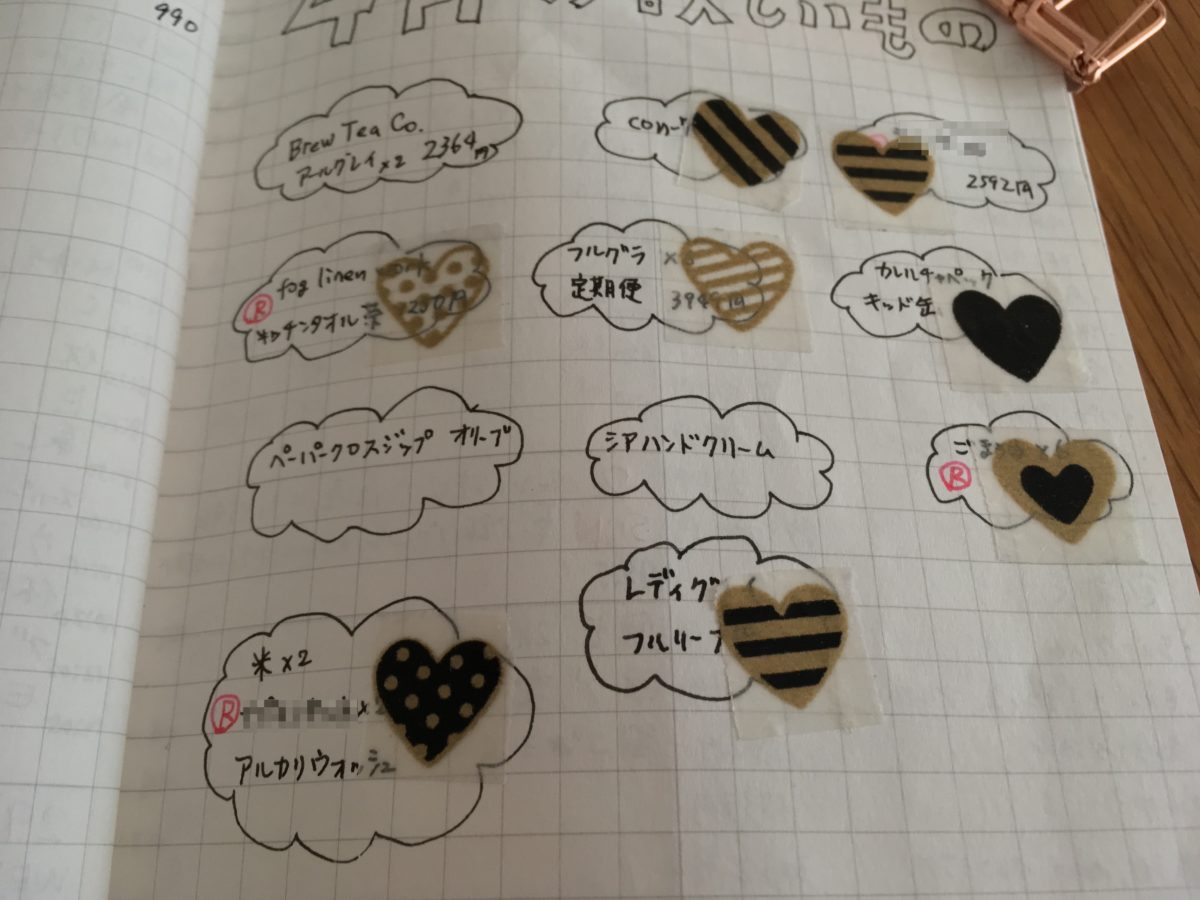 990
4月の欲しいもの
Brew Tea Co.
アールグレイ×2 2364円
con-
2592円
fog linen work
Ⓡ
キッチンタオル 1230円
フルグラ
定期便 394 円
カレルチャペック
キッド缶
ペーパークロスジップ オリーブ
シアハンドクリーム
ご
Ⓡ
レディグ
フルリーフ
米×2
Ⓡ
アルカリウォッシュ